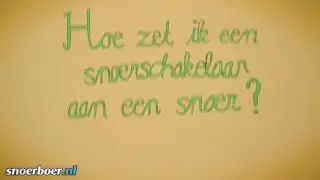 Hoe zet ik een
snoerschakelaar
aan een snoer?
snoerboer.nl